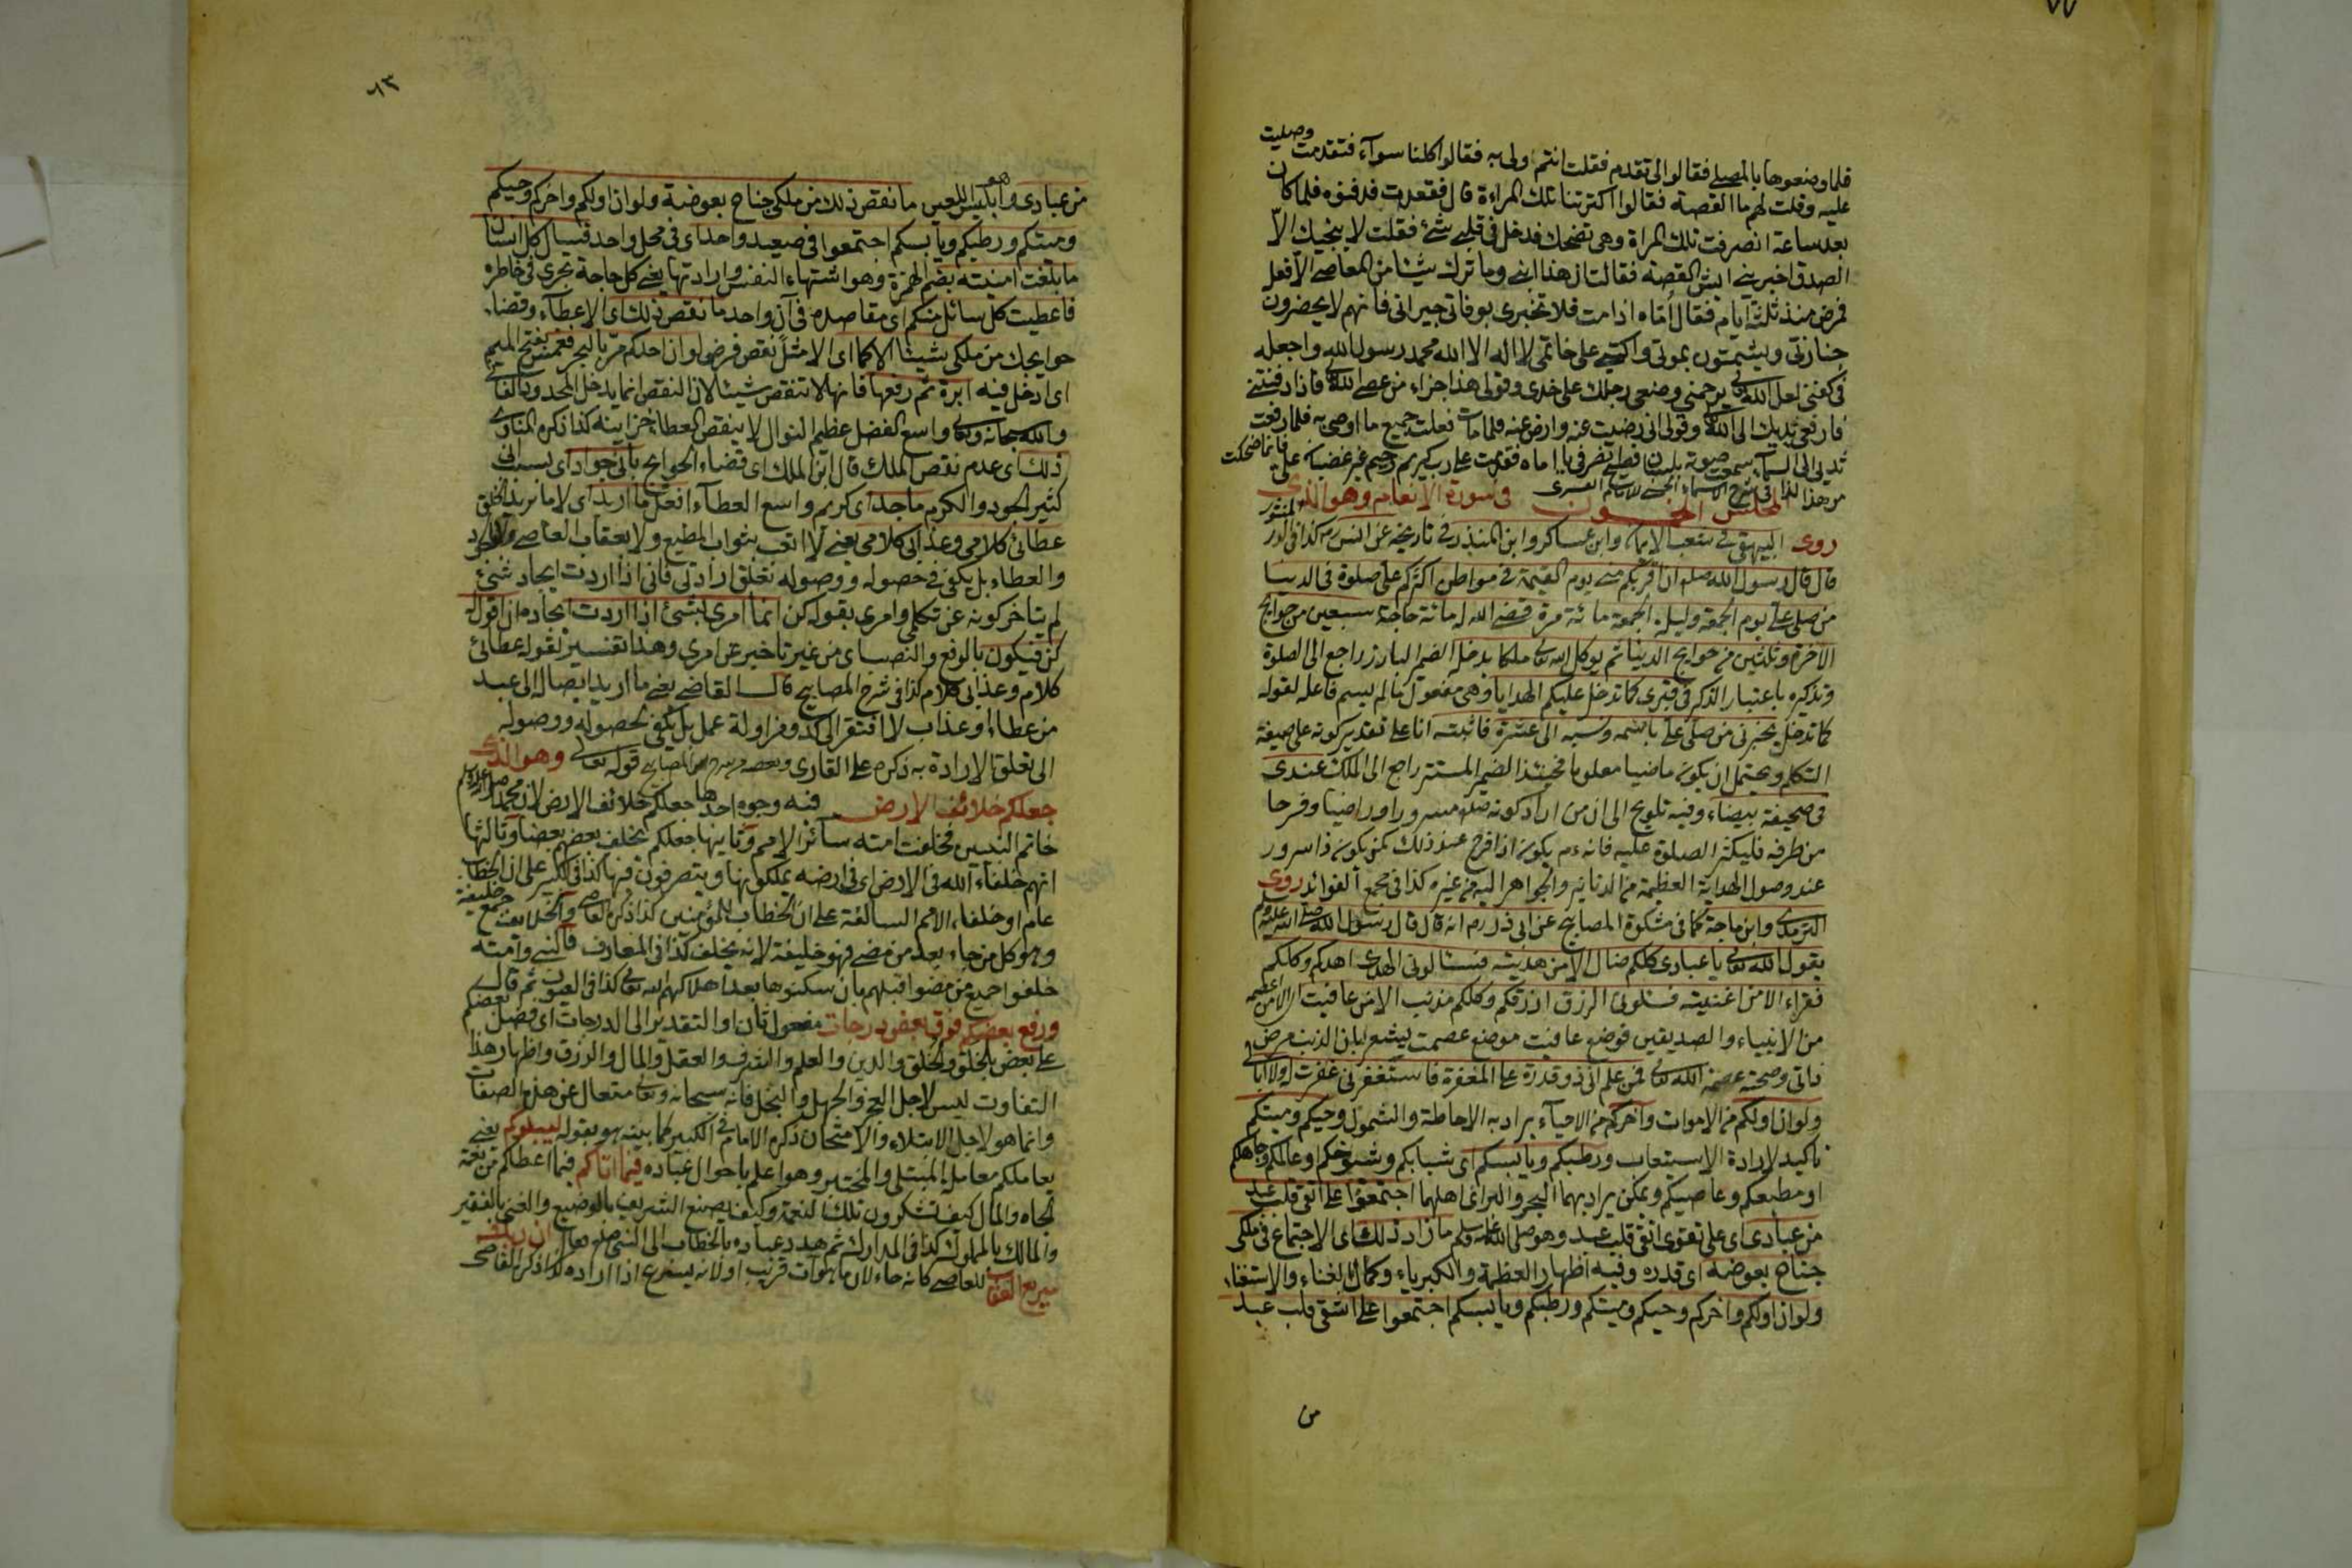 فلما وضعوها بالمصلى فقالوا لى تقدم فقلت انتم اولى به فقالوا كلنا سواء فتقدمت وصليت
عليه وقلت لهم ما القصة فقالوا اكترتنا تلك المراءة قال فقعدت فدفنوه فلما كان
بعد ساعة انصرفت تلك المراة وهى تضحك فدخل فى قلبى شئ فقلت لا ينجيك الا
الصدق اخبرينى ايش القصة فقالت ان هذا ابنى وما ترك شيئا من المعاصى الا فعل
فمرض منذ ثلثة ايام فقال أماه اذا مت فلا تخبرى بوفاتى جيرانى فانهم لا يحضرون
جنازتى ويشمتون بموتى واكتبى على خاتمى لا اله الا الله محمد رسول الله واجعله
فى كفنى لعل الله تعالى يرحمنى وضعى رجلك على خدى وقولى هذا جزاء من عصى الله تعالى فاذا دفنتنى
فارفعى يديك الى الله تعالى وقولى انى رضيت عنه وارض عنه فلما مات فعلت جميع ما اوصى به فلما رفعت
يدى الى السماء سمعت صوته بلسان فصيح انصرفى يا اماه فقدمت على رب كريم رحيم غير غضبان على فانما ضحكت
من هذا كذا فى شرح الاسماء الحسنى للامام القشيرى
المجلس الخمسون فى سورة الانعام وهو الذى
روى البيهقى فى شعب الايمان وابن عساكر وابن المنذر فى تاريخه عن انس رض كذا فى الدر المنثور
قال قال رسول الله صلعم ان اقربكم منى يوم القيمة فى مواطن اكثركم على صلوة فى الدنيا
من صلى على يوم الجمعة وليلة الجمعة مائة مرة قضى الله له مائة حاجة سبعين من حوايج
الاخرة وثلثين من حوايج الدنيا ثم يوكل الله تعالى ملكا يدخل الضمير البارز راجع الى الصلوة
وتذكيره باعتبار الذكر فى قبرى كما تدخل عليكم الهدايا وهى مفعول ما لم يسم فاعله لقوله
كما تدخل يخبرنى من صلى على باسمه ونسبه الى عشرة فاثبته انا على تقدير كونه على صيغة
التكلم ويحتمل ان يكون ماضيا معلوما فحينئذ الضمير المستتر راجع الى الملك عندى
فى صحيفة بيضاء وفيه تلويح الى ان من اراد كونه صلعم مسرورا وراضيا وفرحا
من طرفه فليكثر الصلوة عليه فانه عم يكون اذا فرح عند ذلك كمن يكون ذا سرور
عند وصول الهداية العظيمة من الدنانير والجواهر اليه من غيره كذا فى مجمع الفوائد روى
الترمذى وابن ماجة كما فى مشكوة المصابيح عن ابى ذر رض انه قال قال رسول الله صلى الله عليه وسلم
يقول الله تعالى يا عبادى كلكم ضال الا من هديته فسئالونى الهدى اهدكم وكلكم
فقراء الا من اغنيته فسئلونى الرزق ارزقكم وكلكم مذنب الا من عافيت اى الا من عصمته
من الانبياء والصديقين فوضع عافيت موضع عصمت ليشعر بان الذنب مرض
ذاتى وصحته عصمة الله تعالى فمن علم انى ذو قدرة على المغفرة فاستغفرنى غفرت له ولا ابالى
ولو ان اولكم من الاموات وآخركم من الاحياء يراد به الاحاطة والشمول وحيكم وميتكم
تاكيد لارادة الاستيعاب ورطبكم ويابسكم اى شبابكم وشيوخكم او عالمكم وجاهلكم
او مطيعكم وعاصيكم ويمكن يراد بهما البحر والبر اى اهلهما اجتمعوا على اتقى قلب عبد
من عبادى اى على تقوى اتقى قلب عبد وهو صلى الله عليه وسلم ما زاد ذلك اى الاجتماع فى ملكى
جناح بعوضة اى قدره وفيه اظهار العظمة والكبرياء وكمال الغناء والاستغناء
ولو ان اولكم واخركم وحيكم وميتكم ورطبكم ويابسكم اجتمعوا على اشقى قلب عبد
من
٨٣
من عبادى وهو ابليس اللعين ما نقص ذلك من ملكى جناح بعوضة ولو ان اولكم واخركم وحيكم
وميتكم ورطبكم ويابسكم اجتمعوا فى صعيد واحد اى فى محل واحد فيسال كل انسان
ما بلغت امنيته بضم الهمزة وهو اشتهاء النفس وارادتها يعنى كل حاجة تجرى فى خاطره
فاعطيت كل سائل منكم اى مقاصده فى آن واحد ما نقص ذلك اى الاعطاء وقضاء
حوايجك من ملكى شيئا الا كما اى الا مثل نقص فرض لو ان احدكم مر بالبحر فغمس بفتح الميم
اى ادخل فيه ابرة ثم رفعها فانها لا تنقص شيئا لان النقص انما يدخل المحدود الفانى
والله سبحانه وتعالى واسع الفضل عظيم النوال لا ينقص العطاء خزاينه كذا ذكره المناوى
ذلك اى عدم نقص الملك قال ابن الملك اى قضاء الحوايج بانى جواد اى بسبب انى
كثير الجود والكرم ماجد اى كريم واسع العطاء افعل ما اريد اى لا ما يريد الخلق
عطائى كلامى وعذابى كلامى يعنى لا اتعب بثواب المطيع ولا بعقاب العاصى
والعطاء بل يكفى فى حصوله ووصوله تعلق ارادتى فانى اذا اردت ايجاد شئ
لم يتاخر كونه عن تكلمى وامرى بقوله كن انما امرى لشئ اذا اردت ايجاده ان اقول له
كن فيكون بالرفع والنصب اى من غير تاخير عن امرى وهذا تفسير لقوله عطائى
كلام وعذابى كلام كذا فى شرح المصابيح قال القاضى يعنى ما اريد ايصاله الى عبد
من عطاء او عذاب لا افتقر الى كد ومزاولة عمل بل يكفى لحصوله ووصوله
الى تعلق الارادة به ذكره على القارى وبعضه من شرح المصابيح قوله تعالى وهو الذى
جعلكم خلائف الارض فيه وجوه احدها جعلكم خلائف الارض لان محمدا صلى الله عليه وسلم
خاتم النبيين فخلفت امته سائر الامم وثانيها جعلكم يخلف بعضهم بعضا وثالثها
انهم خلفاء الله فى الارض اى فى ارضه يملكونها ويتصرفون فيها كذا فى الكبير على ان الخطاب
عام او خلفاء الامم السالفة على ان الخطاب للمؤمنين كذا ذكره القاضى والخلائف جمع خليفة
وهو كل من جاء بعد من مضى فهو خليفة لانه يخلف كذا فى المعارف فالنبى وامته
خلفوا جميع من مضوا قبلهم بان سكنوها بعد اهلاكهم الله تعالى كذا فى العيون ثم قال
ورفع بعضكم فوق بعض درجات مفعول ثان او التقدير الى الدرجات اى فضل بعضكم
على بعض بالخلق والخلق والدين والعلم والشرف والعقل والمال والرزق واظهار هذا
التفاوت ليس لاجل العجز والجهل والبخل فانه سبحانه وتعالى متعال عن هذه الصفات
وانما هو لاجل الابتلاء والامتحان ذكره الامام فى الكبير كما بينه هو بقوله ليبلوكم يعنى
يعاملكم معاملة المبتلى والمختبر وهو اعلم باحوال عباده فيما اتاكم فيما اعطاكم من نعمة
الجاه والمال كيف تشكرون تلك النعمة وكيف يصنع الشريف بالوضيع والغنى بالفقير
والمالك بالمملوك كذا فى المدارك ثم هدد عباده بالخطاب الى النبى صلعم فقال ان ربك
سريع العقاب للعاصى كانه جاء لان ما هو آت قريب او لانه يسرع اذا اراده كذا ذكره القاضى